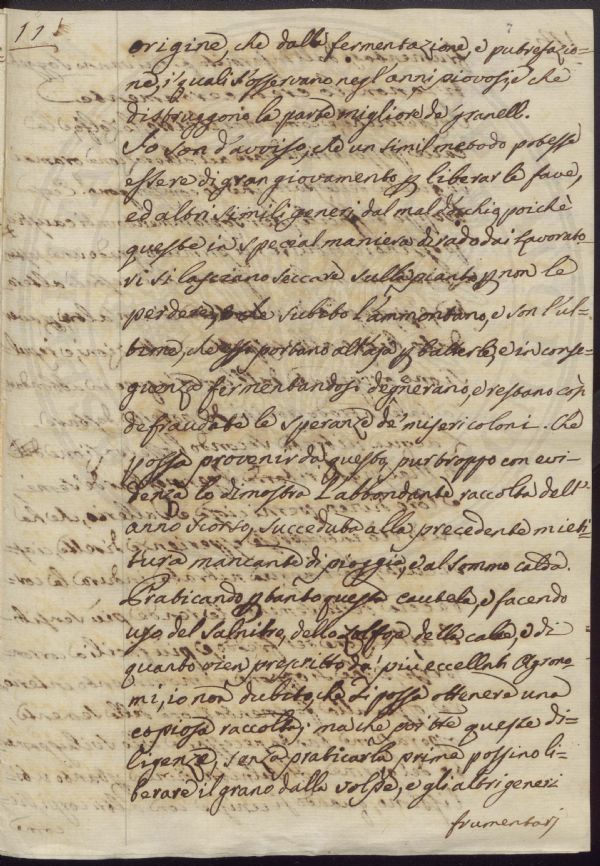 11
7
origine, che dalla fermentazione, e putrefazio=
ne, i quali s'osservano negl'anni piovosi, e che
distruggono la parte migliore de' granelli.
Io son d'avviso, che un simil metodo potesse
essere di gran giovamento p liberar le fave,
ed altri simili generi dal mal, poichè
queste in special maniera di rado dai lavorato=
ri si lasciano seccare sulla pianta, p non le
perdere, subito l'ammontano, e son l'ul=
time, che portano all'aja p batterle, e in conse=
guenza fermentandosi degnerano, e restano così
defraudate le speranze de' miseri coloni. Che
possa provenir da questo, purtroppo con evi=
denza lo dimostra l'abbondante raccolta dell'
anno scorso, succeduta alla precedente mieti=
tura mancante di pioggia, e al sommo calda.
Praticando ptanto questa cautela, e facendo
uso del salnitro, dello zolfo, e della calce, e di
quanto vien prescritto da' più eccellenti Agrono=
mi, io non dubito, che si possa ottenere una
copiosa raccolta; ma che poi tutte queste di=
ligenze, senza praticarla prima possino li=
berare il grano dalla volpe, e gli altri generi
frumentarj